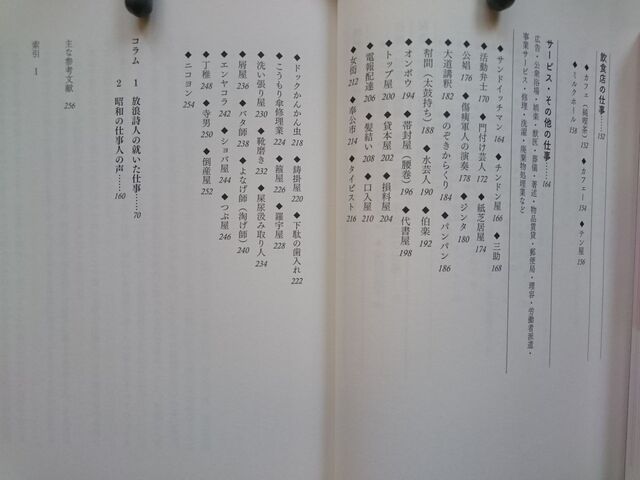 飲食店の仕事……132
◆カフェ（純喫茶）132 ◆カフェー 154 ◆テン屋 156
◆ミルクホール 158
サービス・その他の仕事……164
広告・公衆浴場・娯楽・獣医・葬儀・著述・物品賃貸・郵便局・理容・労働者派遣・
事業サービス・修理・洗濯・廃棄物処理業など
◆サンドイッチマン 164 ◆チンドン屋 166 ◆三助 168
◆活動弁士 170 ◆門付け芸人 172 ◆紙芝居屋 174
◆公娼 176 ◆傷痍軍人の演奏 178 ◆ジンタ 180
◆大道講釈 182 ◆のぞきからくり 184 ◆パンパン 186
◆幇間（太鼓持ち）188 ◆水芸人 190 ◆伯楽 192
◆オンボウ 194 ◆帯封屋（腰巻）196 ◆代書屋 198
◆トップ屋 200 ◆貸本屋 202 ◆損料屋 204
◆電報配達 206 ◆髪結い 208 ◆口入屋 210
◆女衒 212 ◆奉公市 214 ◆タイピスト 216
◆ドックかんかん虫 218 ◆鋳掛屋 220 ◆下駄の歯入れ 222
◆こうもり傘修理業 224 ◆箍屋 226 ◆羅宇屋 228
◆洗い張り屋 230 ◆靴磨き 232 ◆屎尿汲み取り人 234
◆屑屋 236 ◆バタ師 238 ◆よなげ師（淘げ師）240
◆エンヤコラ 242 ◆ショバ屋 244 ◆つぶ屋 246
◆丁稚 248 ◆寺男 250 ◆倒産屋 252
◆ニコヨン 254
コラム 1 放浪詩人の就いた仕事……70
2 昭和の仕事人の声……160
主な参考文献 256
索引 1